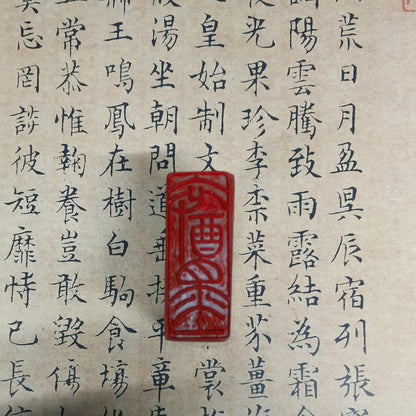 荒日月盈昃辰宿列張
陽雲騰致雨露結為霜
光果珍李柰菜重芥薑
皇始制文裳
湯坐朝問道垂拱平章
王鳴鳳在樹白駒食場
常恭惟鞠養豈敢毀傷
忘罔談彼短靡恃己長